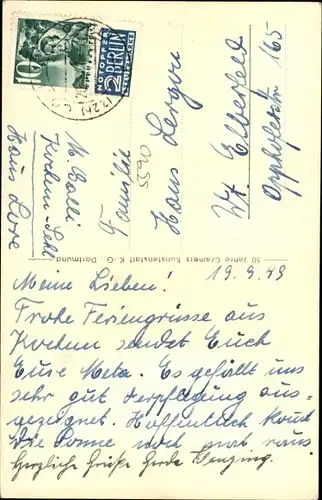 Meine Lieben!
19.9.49
Frohe Feriengrüsse aus
Kochem sendet Euch
Eure Meta. Es gefällt uns
sehr gut Verpflegung aus=
gezeichnet. Hoffentlich kommt
die Sonne noch mal raus
Herzliche Grüße Gerda
Familie
Hans
W. Elberfeld
165
Haus Lore
50 Jahre Cramers Kunstanstalt K.-G., Dortmund
5590
10
NOTOPFER
2 BERLIN
STEUERMARKE